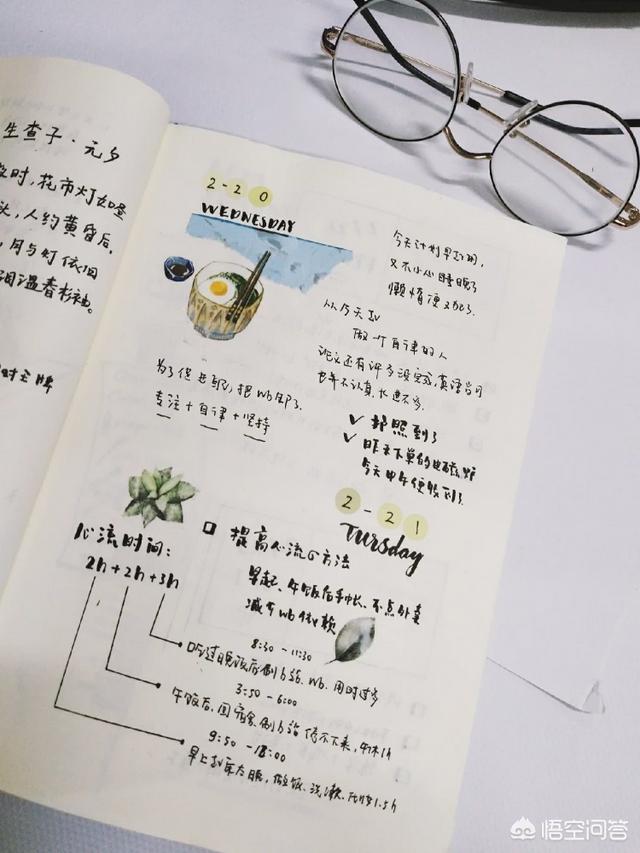 生查子·元夕
时,花市灯如昼
头,人约黄昏后,
月与灯依旧
泪湿春衫袖。
时王牌
2-20
WEDNESDAY
今天计划早起的,
又不小心睡晚了
懒惰使又犯了.
从今天以
做一个自律的人
论文还有许多没完成,英语
也并不认真,
专注+自律+坚持
✓ 护照到了
✓ 昨天下单的电磁炉
今天中午便收到了.
2-21
TURSday
心流时间:
2h+2h+3h
□ 提高心流的方法
早起、午饭后手帐、不点外卖
减少wb依赖
8:30 - 11:30
吃过晚饭后刷b站、wb、用时过多
3:50 - 6:00
午饭后,回宿舍,刷b站停不下来,午休1h
9:50 - 12:00
早上起床太晚,做饭、洗漱、
悟空问答